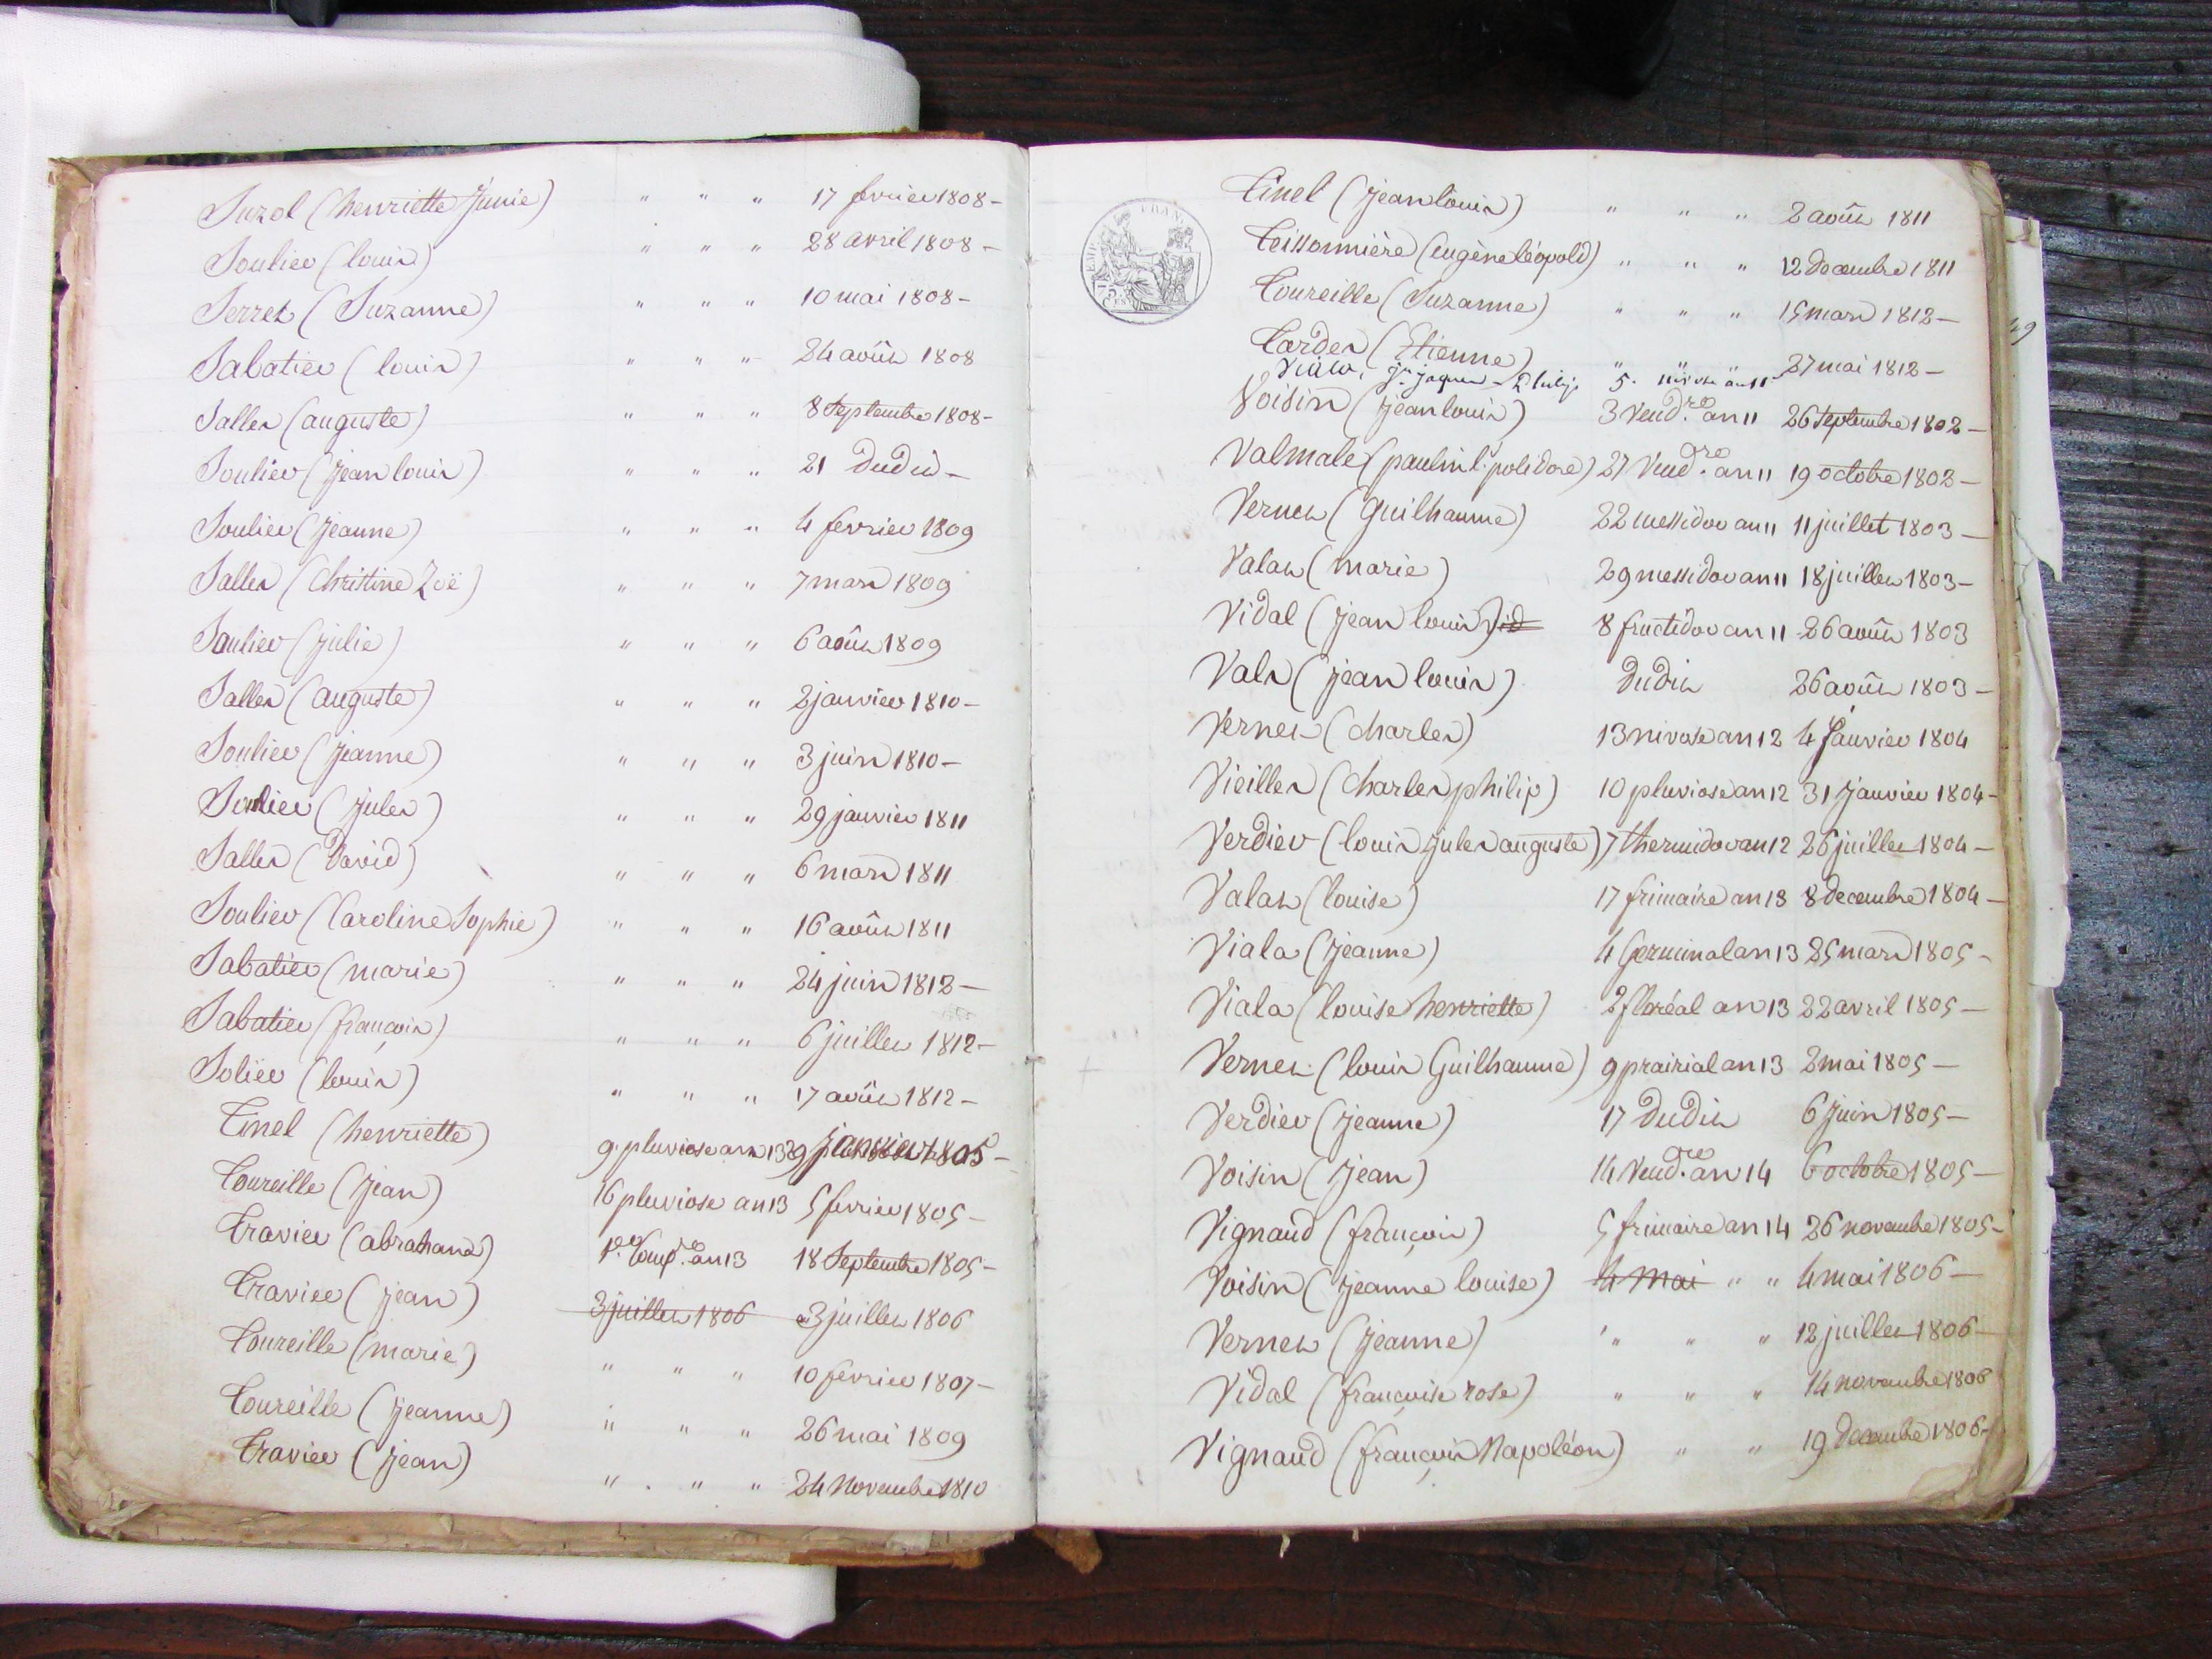 Suzol (henriette Junie) " " " 17 fevrier 1808 –
Soulier (louis) " " " 28 avril 1808 –
Serret (Suzanne) " " " 10 mai 1808 –
Sabatier (louis) " " " 24 août 1808
Salles (auguste) " " " 8 Septembre 1808 –
Soulier (jean louis) " " " 21 dudit –
Soulier (jeanne) " " " 4 fevrier 1809
Salles (Christine Zoë) " " " 7 mars 1809
Soulier (julie) " " " 6 août 1809
Salles (auguste) " " " 2 janvier 1810 –
Soulier (jeanne) " " " 3 juin 1810 –
Soulier (jules) " " " 29 janvier 1811
Salles (David) " " " 6 mars 1811
Soulier (Caroline Sophie) " " " 16 août 1811
Sabatier (marie) " " " 24 juin 1812 –
Sabatier (françois) " " " 6 juillet 1812 –
Solier (louis) " " " 17 août 1812 –
Tinel (henriette) 9 pluviose an 13 29 janvier 1805 –
Toureille (jean) 16 pluviose an 13 5 fevrier 1805 –
Travier (abraham) 1er Comp.re an 13 18 Septembre 1805 –
Travier (jean) 3 juillet 1806 3 juillet 1806
Toureille (marie) " " " 10 fevrier 1807 –
Toureille (jeanne) " " " 26 mai 1809
Travier (jean) " " " 24 Novembre 1810
Tinel (jean louis) " " " 2 août 1811
Teissonnière (eugène léopold) " " " 12 decembre 1811
Toureille (Suzanne) " " " 15 mars 1812 –
Tardes (Etienne) " " " 27 mai 1812 –
Viala, jn jaques - Philip 5 nivose an 11
Voisin (jean louis) 3 Vend.re an 11 26 Septembre 1802 –
Valmale (paulin l. polidore) 27 Vend.re an 11 19 octobre 1802 –
Vernet (Guilhaume) 22 messidor an 11 11 juillet 1803 –
Valat (marie) 29 messidor an 11 18 juillet 1803 –
Vidal (jean louis) id 8 fructidor an 11 26 août 1803
Vals (jean louis) dudit 26 août 1803 –
Vernet (charles) 13 nivose an 12 4 janvier 1804
Vieilles (Charles philip) 10 pluviose an 12 31 janvier 1804 –
Verdier (louis jules auguste) 7 thermidor an 12 26 juillet 1804 –
Valat (louise) 17 frimaire an 13 8 decembre 1804 –
Viala (jeanne) 4 Germinal an 13 25 mars 1805 –
Viala (louise henriette) 2 floréal an 13 22 avril 1805 –
Vernet (louis Guilhaume) 9 prairial an 13 2 mai 1805 –
Verdier (jeanne) 17 dudit 6 juin 1805 –
Voisin (jean) 14 Vend.re an 14 6 octobre 1805 –
Vignaud (françois) 5 frimaire an 14 26 novembre 1805 –
Voisin (jeanne louise) 4 Mai " " 4 mai 1806 –
Vernet (jeanne) " " " 12 juillet 1806 –
Vidal (françoise rose) " " " 14 novembre 1806
Vignaud (françois Napoléon) " " 19 decembre 1806 –